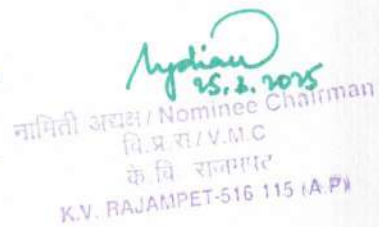 25.3.2025
नामिती अध्यक्ष / Nominee Chairman
वि.प्र.स / V.M.C
के वि राजमपेट
K.V. RAJAMPET-516 115 (A.P)